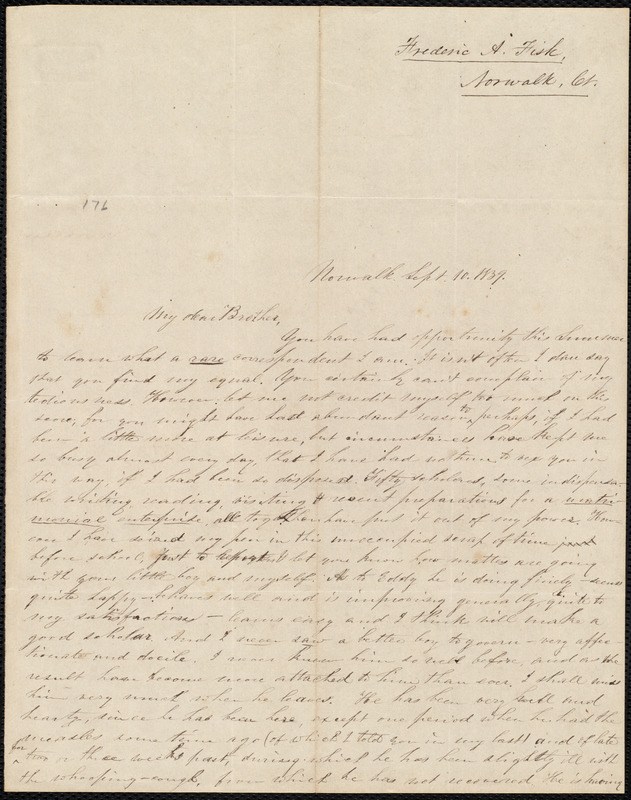 Frederic A. Fisk,
Norwalk, Ct.
176
Norwalk Sept. 10. 1839.
My dear Brother,
You have had opportunity this Summer
to learn what a rare correspondent I am. It isn't often I dare say
that you find my equal. You certainly can't complain of my
tediousness. However, let me not credit myself too much on this
score; for you might have had abundant reason to, perhaps, if I had
been a little more at leisure, but circumstances have kept me
so busy almost every day, that I have had no time to vex you in
this way, if I had been so disposed. Fifty scholars, some indispensa-
ble writing, reading, visiting & recent preparations for a matri-
monial enterprise, all together have put it out of my power. How-
ever I have seized my pen in this unoccupied scrap of time just
before school, just to let you know how matters are going
with your little boy and myself. As to Eddy he is doing finely - seems
quite happy - behaves well and is improving generally, quite to
my satisfaction - learns easy and I think will make a
good scholar. And I never saw a better boy to govern - very affec-
tionate and docile. I never knew him so well before, and as the
result have become more attached to him than ever. I shall miss
him very much when he leaves. He has been very well and
hearty, since he has been here, except one period when he had the
measles some time ago (of which I told you in my last) and of late
for two or three weeks past, during which he has been slightly ill with
the whooping-cough, from which he has not recovered. He is having